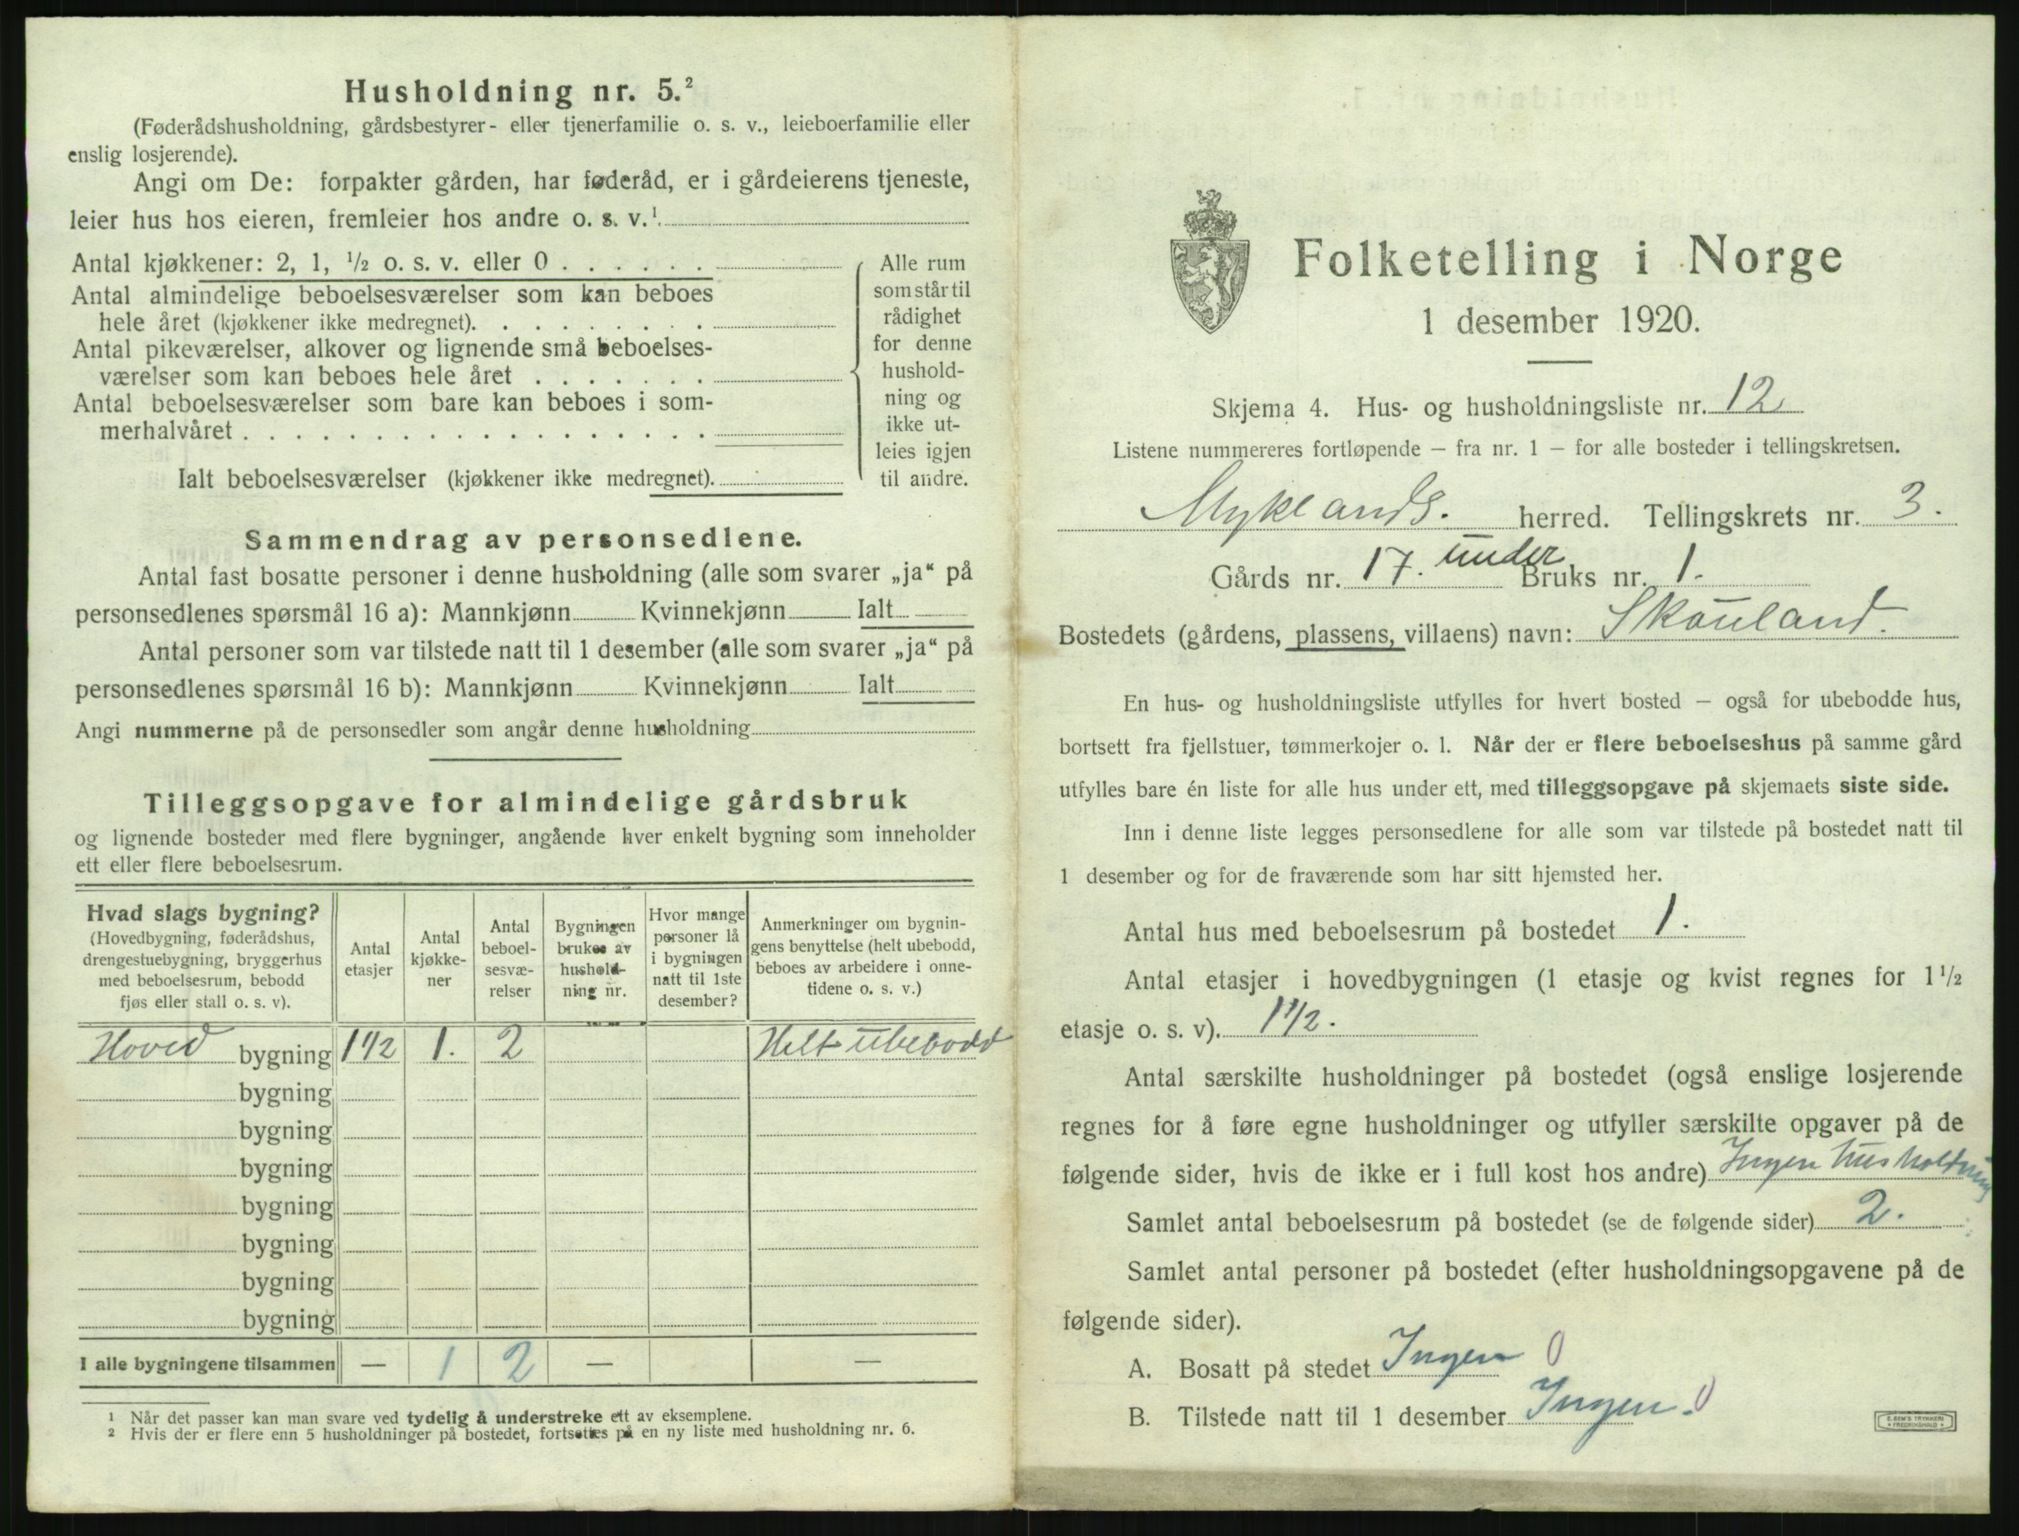 Husholdning nr. 5.²
(Føderådshusholdning, gårdsbestyrer- eller tjenerfamilie o. s. v., leieboerfamilie eller
enslig losjerende).
Angi om De: forpakter gården, har føderåd, er i gårdeierens tjeneste,
leier hus hos eieren, fremleier hos andre o. s. v.¹
Antal kjøkkener: 2, 1, ½ o. s. v. eller 0 . . . . . .
Antal almindelige beboelsesværelser som kan beboes
hele året (kjøkkener ikke medregnet). . . . . . . . .
Antal pikeværelser, alkover og lignende små beboelses-
værelser som kan beboes hele året . . . . . . .
Antal beboelsesværelser som bare kan beboes i som-
merhalvåret . . . . . . . . . . . . . . . . . .
Ialt beboelsesværelser (kjøkkener ikke medregnet).
Alle rum
som står til
rådighet
for denne
hushold-
ning og
ikke ut-
leies igjen
til andre.
Sammendrag av personsedlene.
Antal fast bosatte personer i denne husholdning (alle som svarer „ja“ på
personsedlenes spørsmål 16 a): Mannkjønn Kvinnekjønn Ialt
Antal personer som var tilstede natt til 1 desember (alle som svarer „ja“ på
personsedlenes spørsmål 16 b): Mannkjønn Kvinnekjønn Ialt
Angi nummerne på de personsedler som angår denne husholdning
Tilleggsopgave for almindelige gårdsbruk
og lignende bosteder med flere bygninger, angående hver enkelt bygning som inneholder
ett eller flere beboelsesrum.
Hvad slags bygning?
(Hovedbygning, føderådshus,
drengestuebygning, bryggerhus
med beboelsesrum, bebodd
fjøs eller stall o. s. v).
Antal
etasjer
Antal
kjøkke-
ner
Antal
beboel-
sesvæ-
relser
Bygningen
brukes av
hushold-
ning nr.
Hvor mange
personer lå
i bygningen
natt til 1ste
desember?
Anmerkninger om bygnin-
gens benyttelse (helt ubebodd,
beboes av arbeidere i onne-
tidene o. s. v.)
Hoved bygning 1½ 1. 2 Helt ubebodd
bygning
bygning
bygning
bygning
bygning
bygning
bygning
I alle bygningene tilsammen — 1 2 — —
¹ Når det passer kan man svare ved tydelig å understreke ett av eksemplene.
² Hvis der er flere enn 5 husholdninger på bostedet, fortsettes på en ny liste med husholdning nr. 6.
Folketelling i Norge
1 desember 1920.
Skjema 4. Hus- og husholdningsliste nr. 12
Listene nummereres fortløpende — fra nr. 1 — for alle bosteder i tellingskretsen.
Myklands. herred. Tellingskrets nr. 3.
Gårds nr. 17. under Bruks nr. 1.
Bostedets (gårdens, plassens, villaens) navn: Skåuland.
En hus- og husholdningsliste utfylles for hvert bosted — også for ubebodde hus,
bortsett fra fjellstuer, tømmerkojer o. l. Når der er flere beboelseshus på samme gård
utfylles bare én liste for alle hus under ett, med tilleggsopgave på skjemaets siste side.
Inn i denne liste legges personsedlene for alle som var tilstede på bostedet natt til
1 desember og for de fraværende som har sitt hjemsted her.
Antal hus med beboelsesrum på bostedet 1.
Antal etasjer i hovedbygningen (1 etasje og kvist regnes for 1½
etasje o. s. v). 1½.
Antal særskilte husholdninger på bostedet (også enslige losjerende
regnes for å føre egne husholdninger og utfyller særskilte opgaver på de
følgende sider, hvis de ikke er i full kost hos andre) Ingen husholdning
Samlet antal beboelsesrum på bostedet (se de følgende sider) 2.
Samlet antal personer på bostedet (efter husholdningsopgavene på de
følgende sider).
A. Bosatt på stedet Ingen 0
B. Tilstede natt til 1 desember Ingen. 0
E. SEM'S TRYKKERI
FREDRIKSHALD